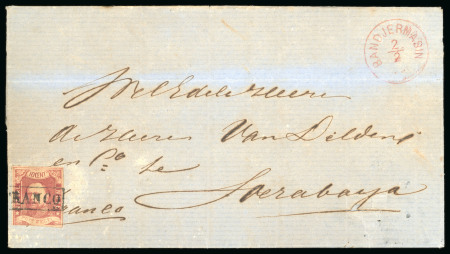 BANDJERMASIN
2/
WelEdele Heere
de Heeren Van Delden
en Co. te
Soerabaya
franco
FRANCO